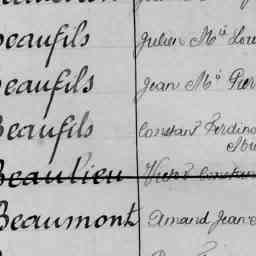 Beaufils Julien Mie Lou
Beaufils Jean Me Pier
Beaufils Constant Ferdina
Beaulieu Victor Constan
Beaumont Amand Jean